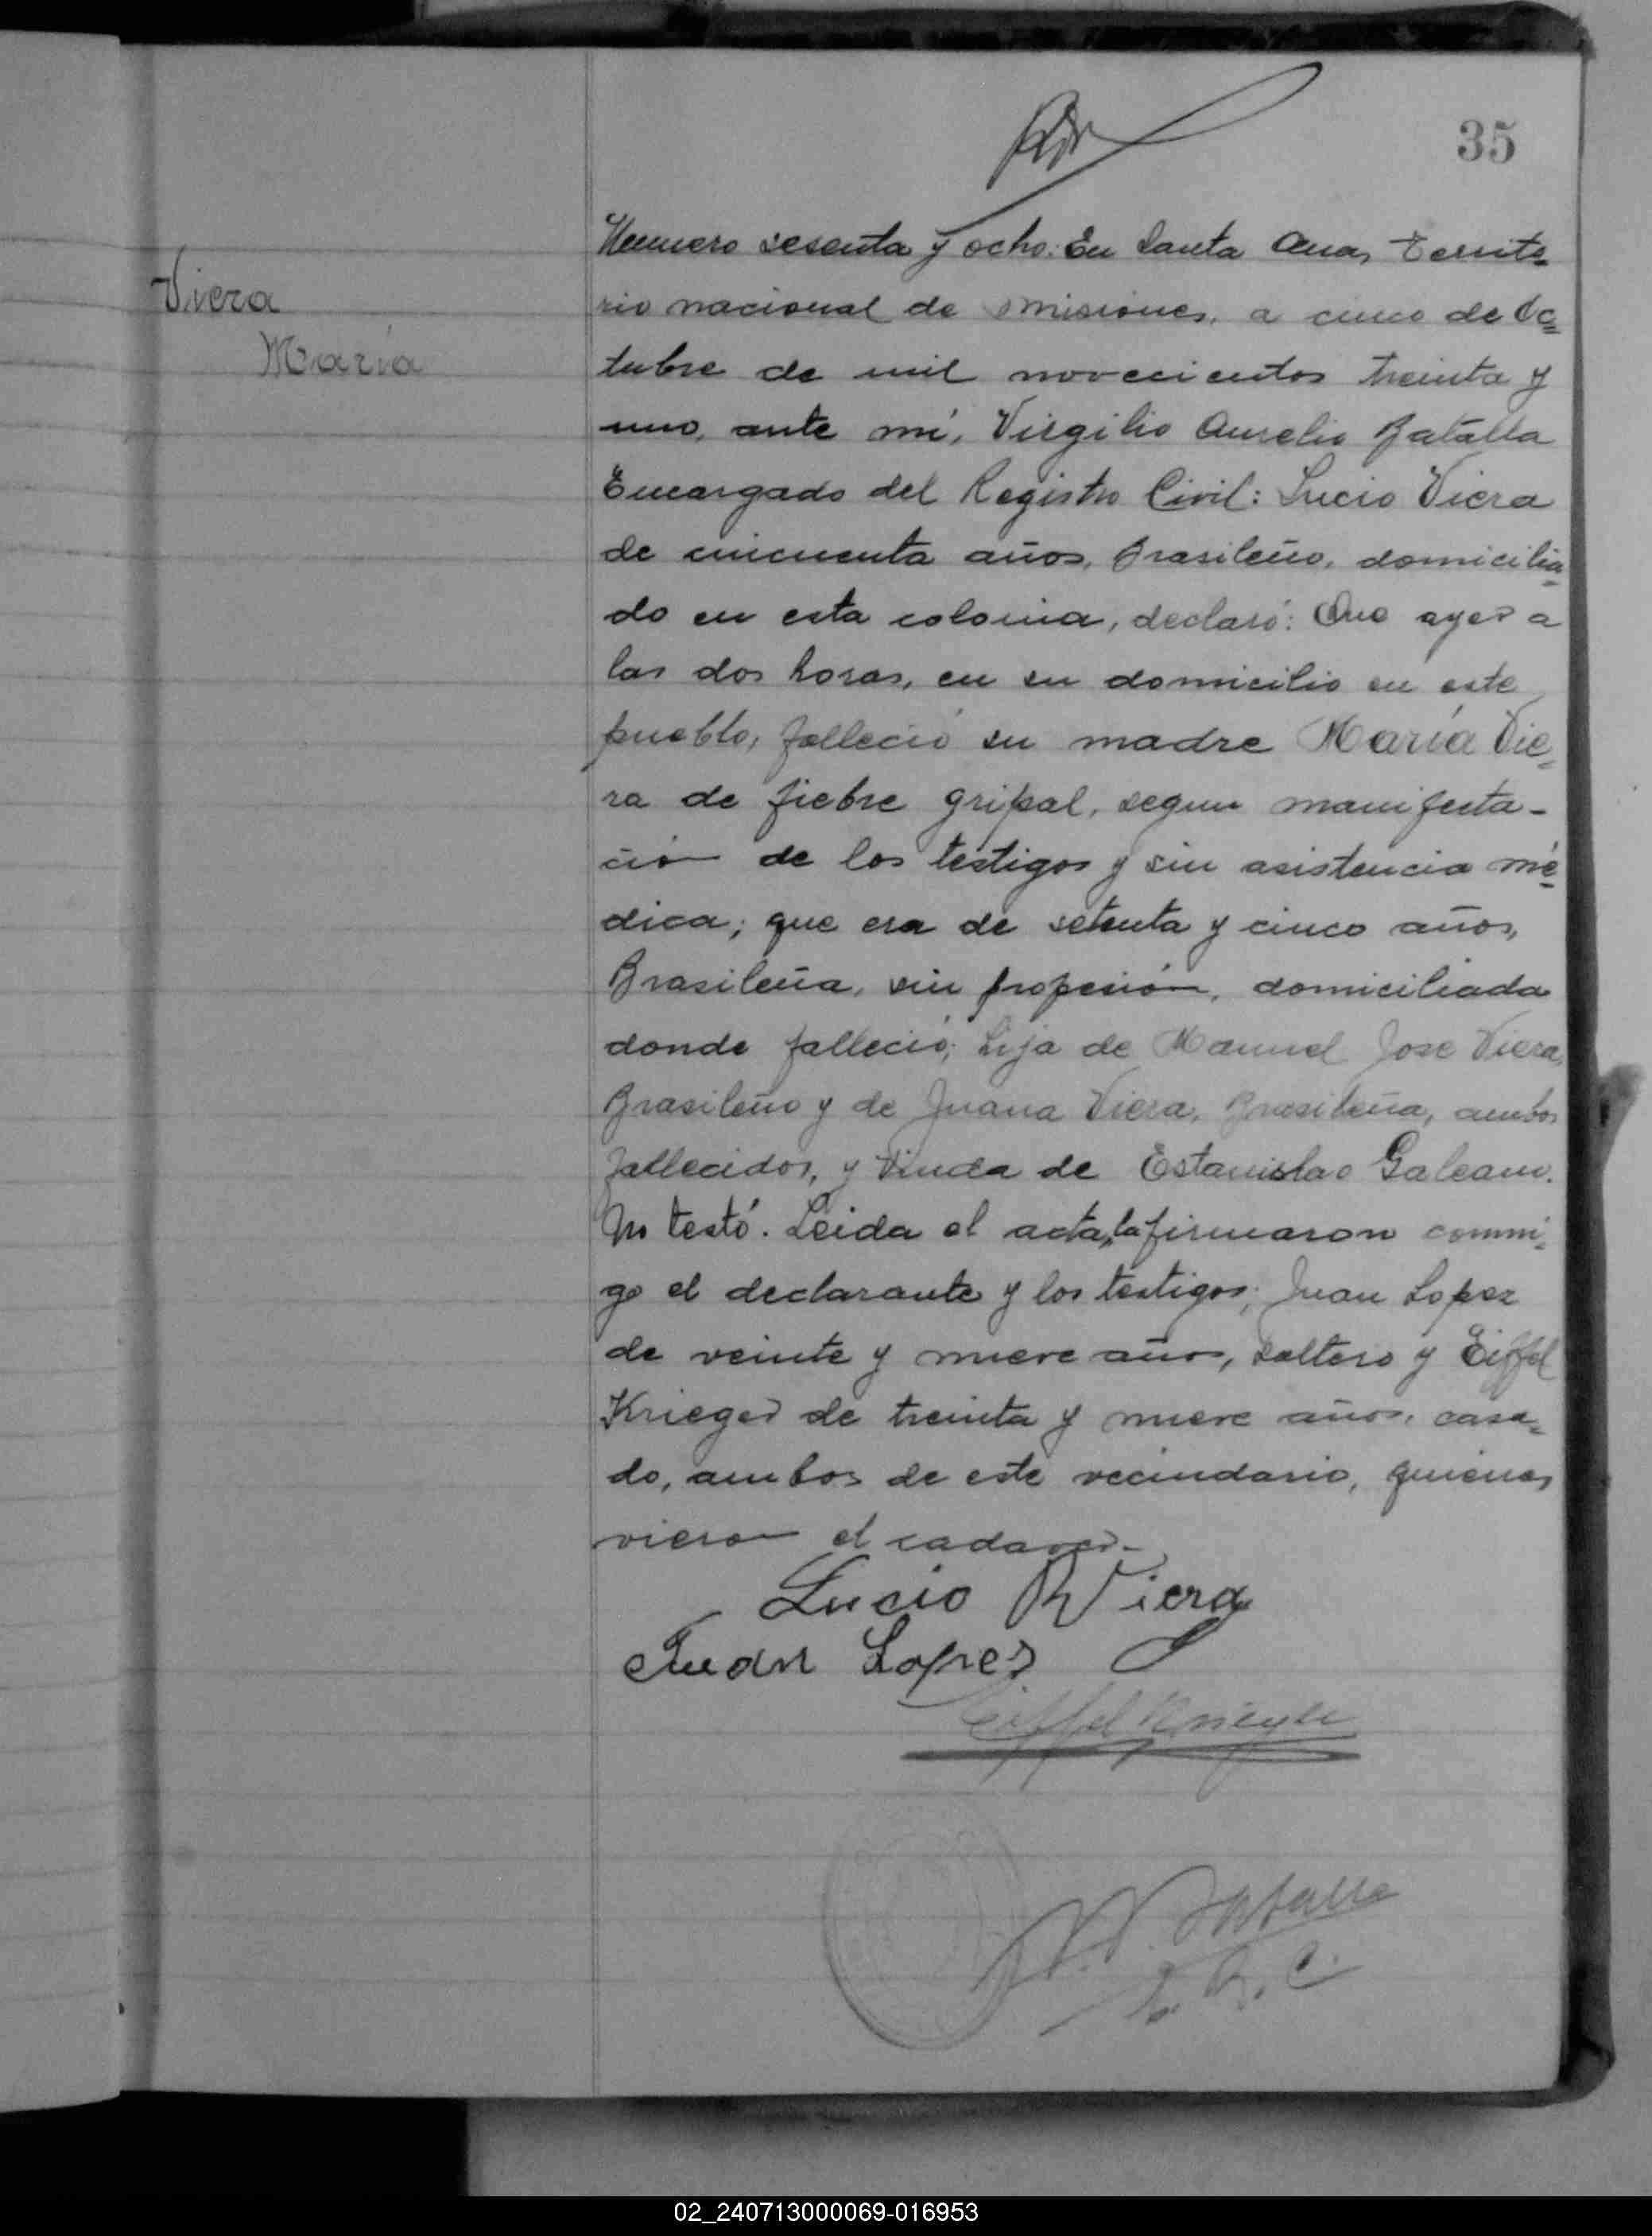 35
Viera
María
Numero sesenta y ocho: En Santa Ana, Territo=
rio nacional de Misiones, a cinco de Oc=
tubre de mil novecientos treinta y
uno, ante mí, Virgilio Aurelio Batalla
Encargado del Registro Civil: Lucio Viera
de cincuenta años, Brasileño, domicilia=
do en esta colonia, declaró: Que ayer a
las dos horas, en su domicilio en este
pueblo, falleció su madre María Vie=
ra de fiebre gripal, segun manifesta-
ción de los testigos y sin asistencia mé=
dica; que era de setenta y cinco años,
Brasileña, sin profesión, domiciliada
donde falleció; hija de Manuel Jose Viera,
Brasileño y de Juana Viera, Brasileña, ambos
fallecidos, y viuda de Estanislao Galeano.
No testó. Leida el acta, la firmaron conmi=
go el declarante y los testigos; Juan Lopez
de veinte y nueve años, soltero y Eiffel
Krieger de treinta y nueve años, casa=
do, ambos de este vecindario, quienes
vieron el cadaver.-
Lucio R Viera
Juan Lopez
Eiffel Krieger
V. A. Batalla
E. R. C.
02_240713000069-016953